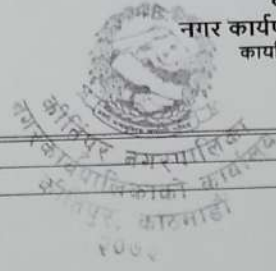 नगर कार्य
कार्य
कीर्तिपुर नगरपालिका
नगर कार्यपालिकाको कार्यालय
कीर्तिपुर, काठमाडौं